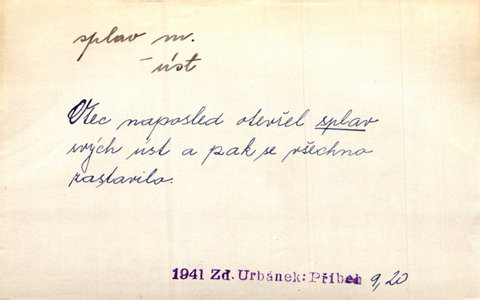 splav m.
– úst
Otec naposled otevřel splav
svých úst a pak se všechno
zastavilo.
1941 Zd. Urbánek: Příběh 9,20